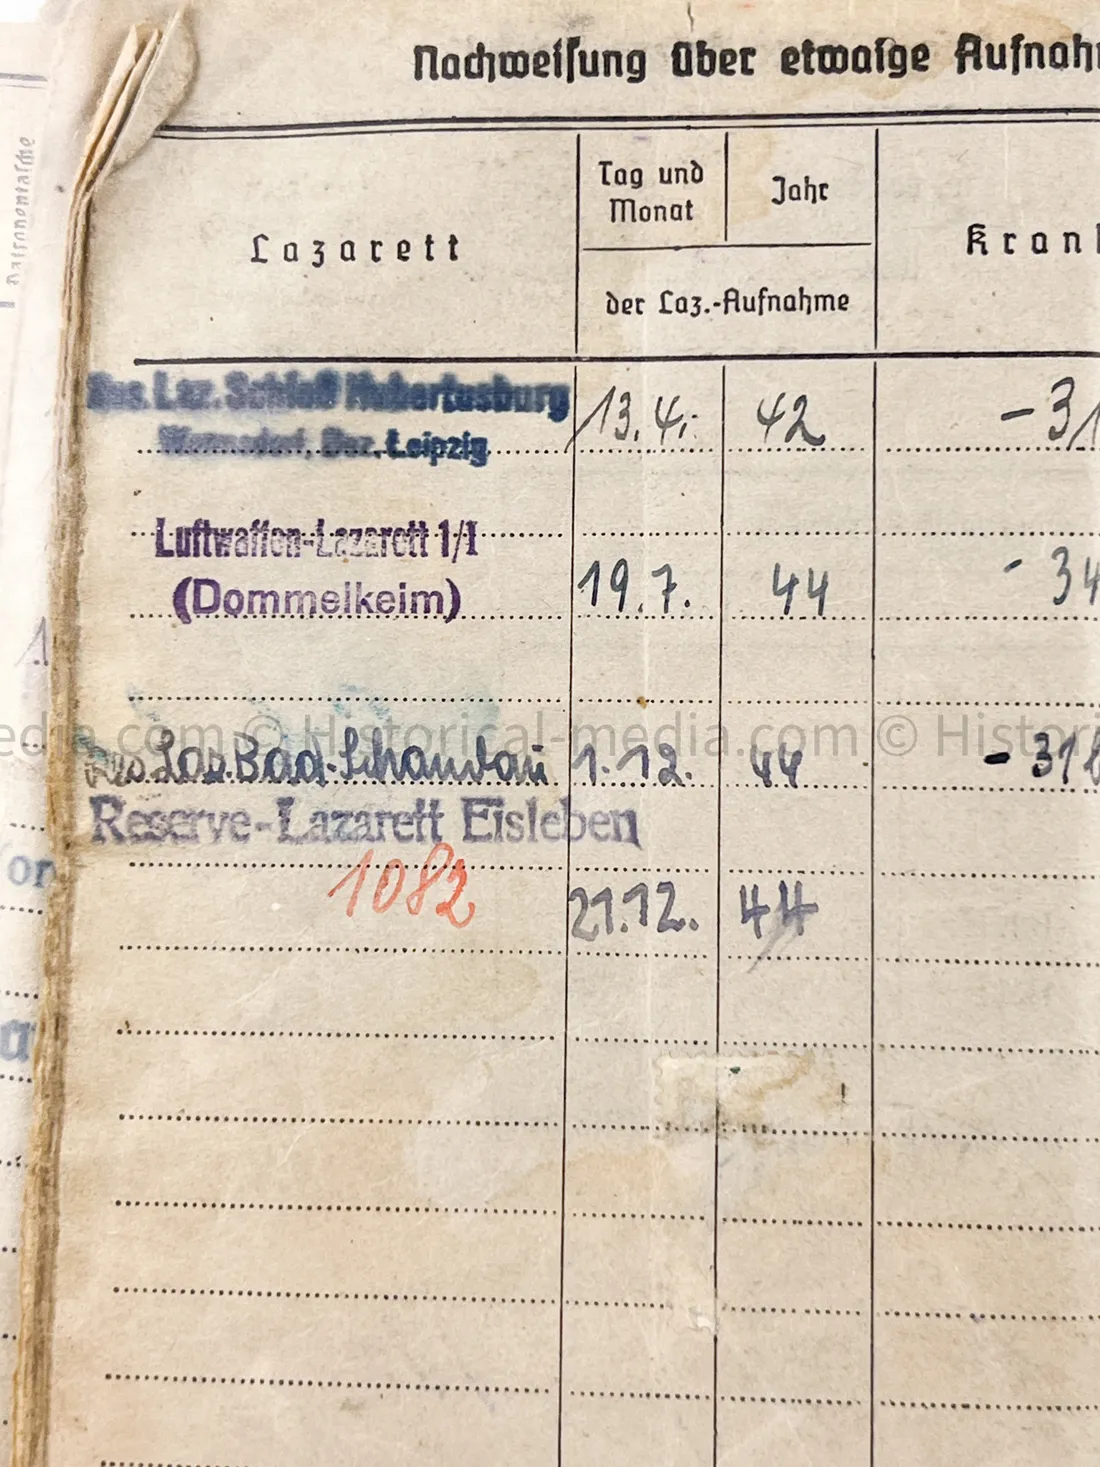 Nachweisung über etwaige Aufnahm
Lazarett
Tag und
Monat
Jahr
der Laz.-Aufnahme
Krank
Res. Laz. Schloß Hubertusburg
Wermsdorf, Bez. Leipzig
13.4. 42 -31
Luftwaffen-Lazarett 1/I
(Dommelkeim)
19.7. 44 - 34
Res Laz. Bad-Schandau 1.12. 44 - 31b
© Historical-media.com © Histori
Reserve-Lazarett Eisleben
1082
21.12. 44
Patronentasche